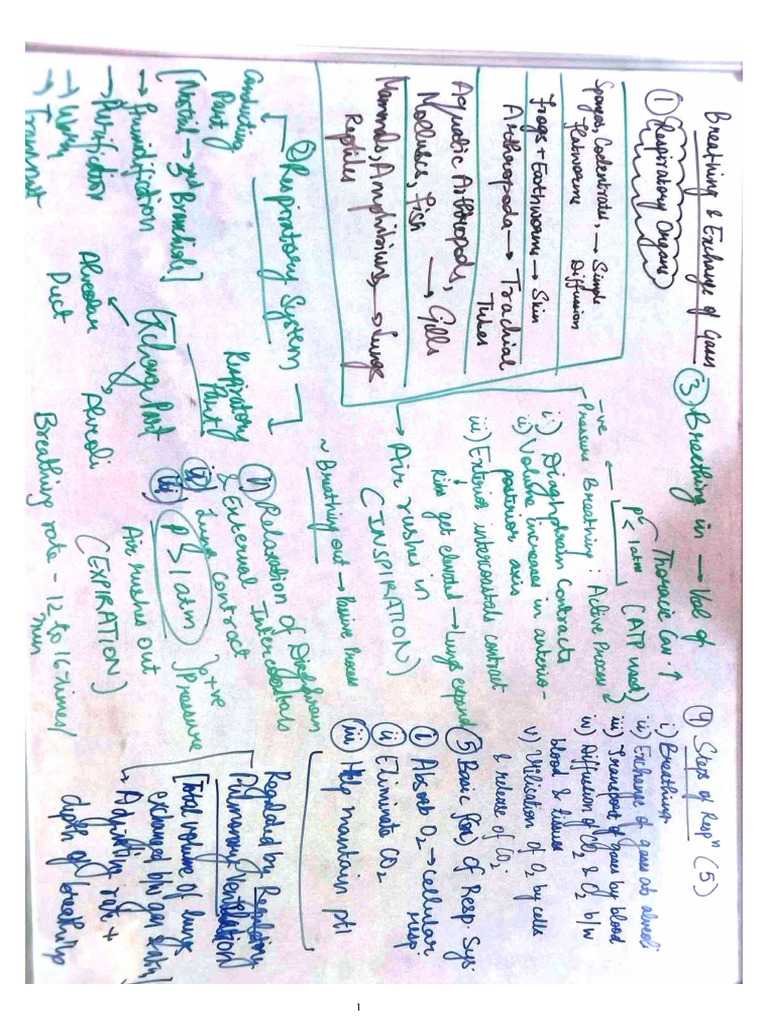 Breathing & Exchange of Gases
① Respiratory Organs
Sponges, Coelentrates, → Simple
flatworms Diffusion
Frogs + Earthworms → Skin
Arthropoda → Trachial
Tubes
Aquatic Arthropods,
Molluscs, Fish → Gills
Mammals, Amphibians, → Lungs
Reptiles
② Respiratory System
Conducting
Part
[Nostril → Bronchiole]
→ Humidification
→ Purification
→ Warm
→ Transport
Respiratory
Part
Exchange Part
Alveolar
Duct
Alveoli
③ Breathing in → Vol of
Thoracic Cav. ↑
P < 1 atm
(ATP used)
-ve
Pressure Breathing : Active Process
i) Diaghphram Contracts
ii) Volume increases in anterio-
posterior axis
iii) Exterior intercostals contract
Ribs get elevated → Lungs expand
→ Air rushes in
(INSPIRATION)
~ Breathing out → Passive Process
i) Relaxation of Diaphram
& External Intercostals
ii) Lungs Contract
iii) P > 1 atm } +ve
pressure
Air rushes out
(EXPIRATION)
Breathing rate - 12 to 16 times/
min
④ Steps of Respⁿ (5)
i) Breathing
ii) Exchange of gases at alveoli
iii) Transport of gases by blood
iv) Diffusion of CO₂ & O₂ b/w
blood & tissues
v) Utilication of O₂ by cells
& release of CO₂.
⑤ Basic fxn) of Resp. Sys:
i Absorb O₂ → cellular
resp.
ii Eliminate CO₂
iii Help maintain pH
Regulated by Regulating
Pulmonary Ventilation
[Total volume of lungs
exchanged b/w gas & atm]
→ Adjusting rate +
depth of breathing
1